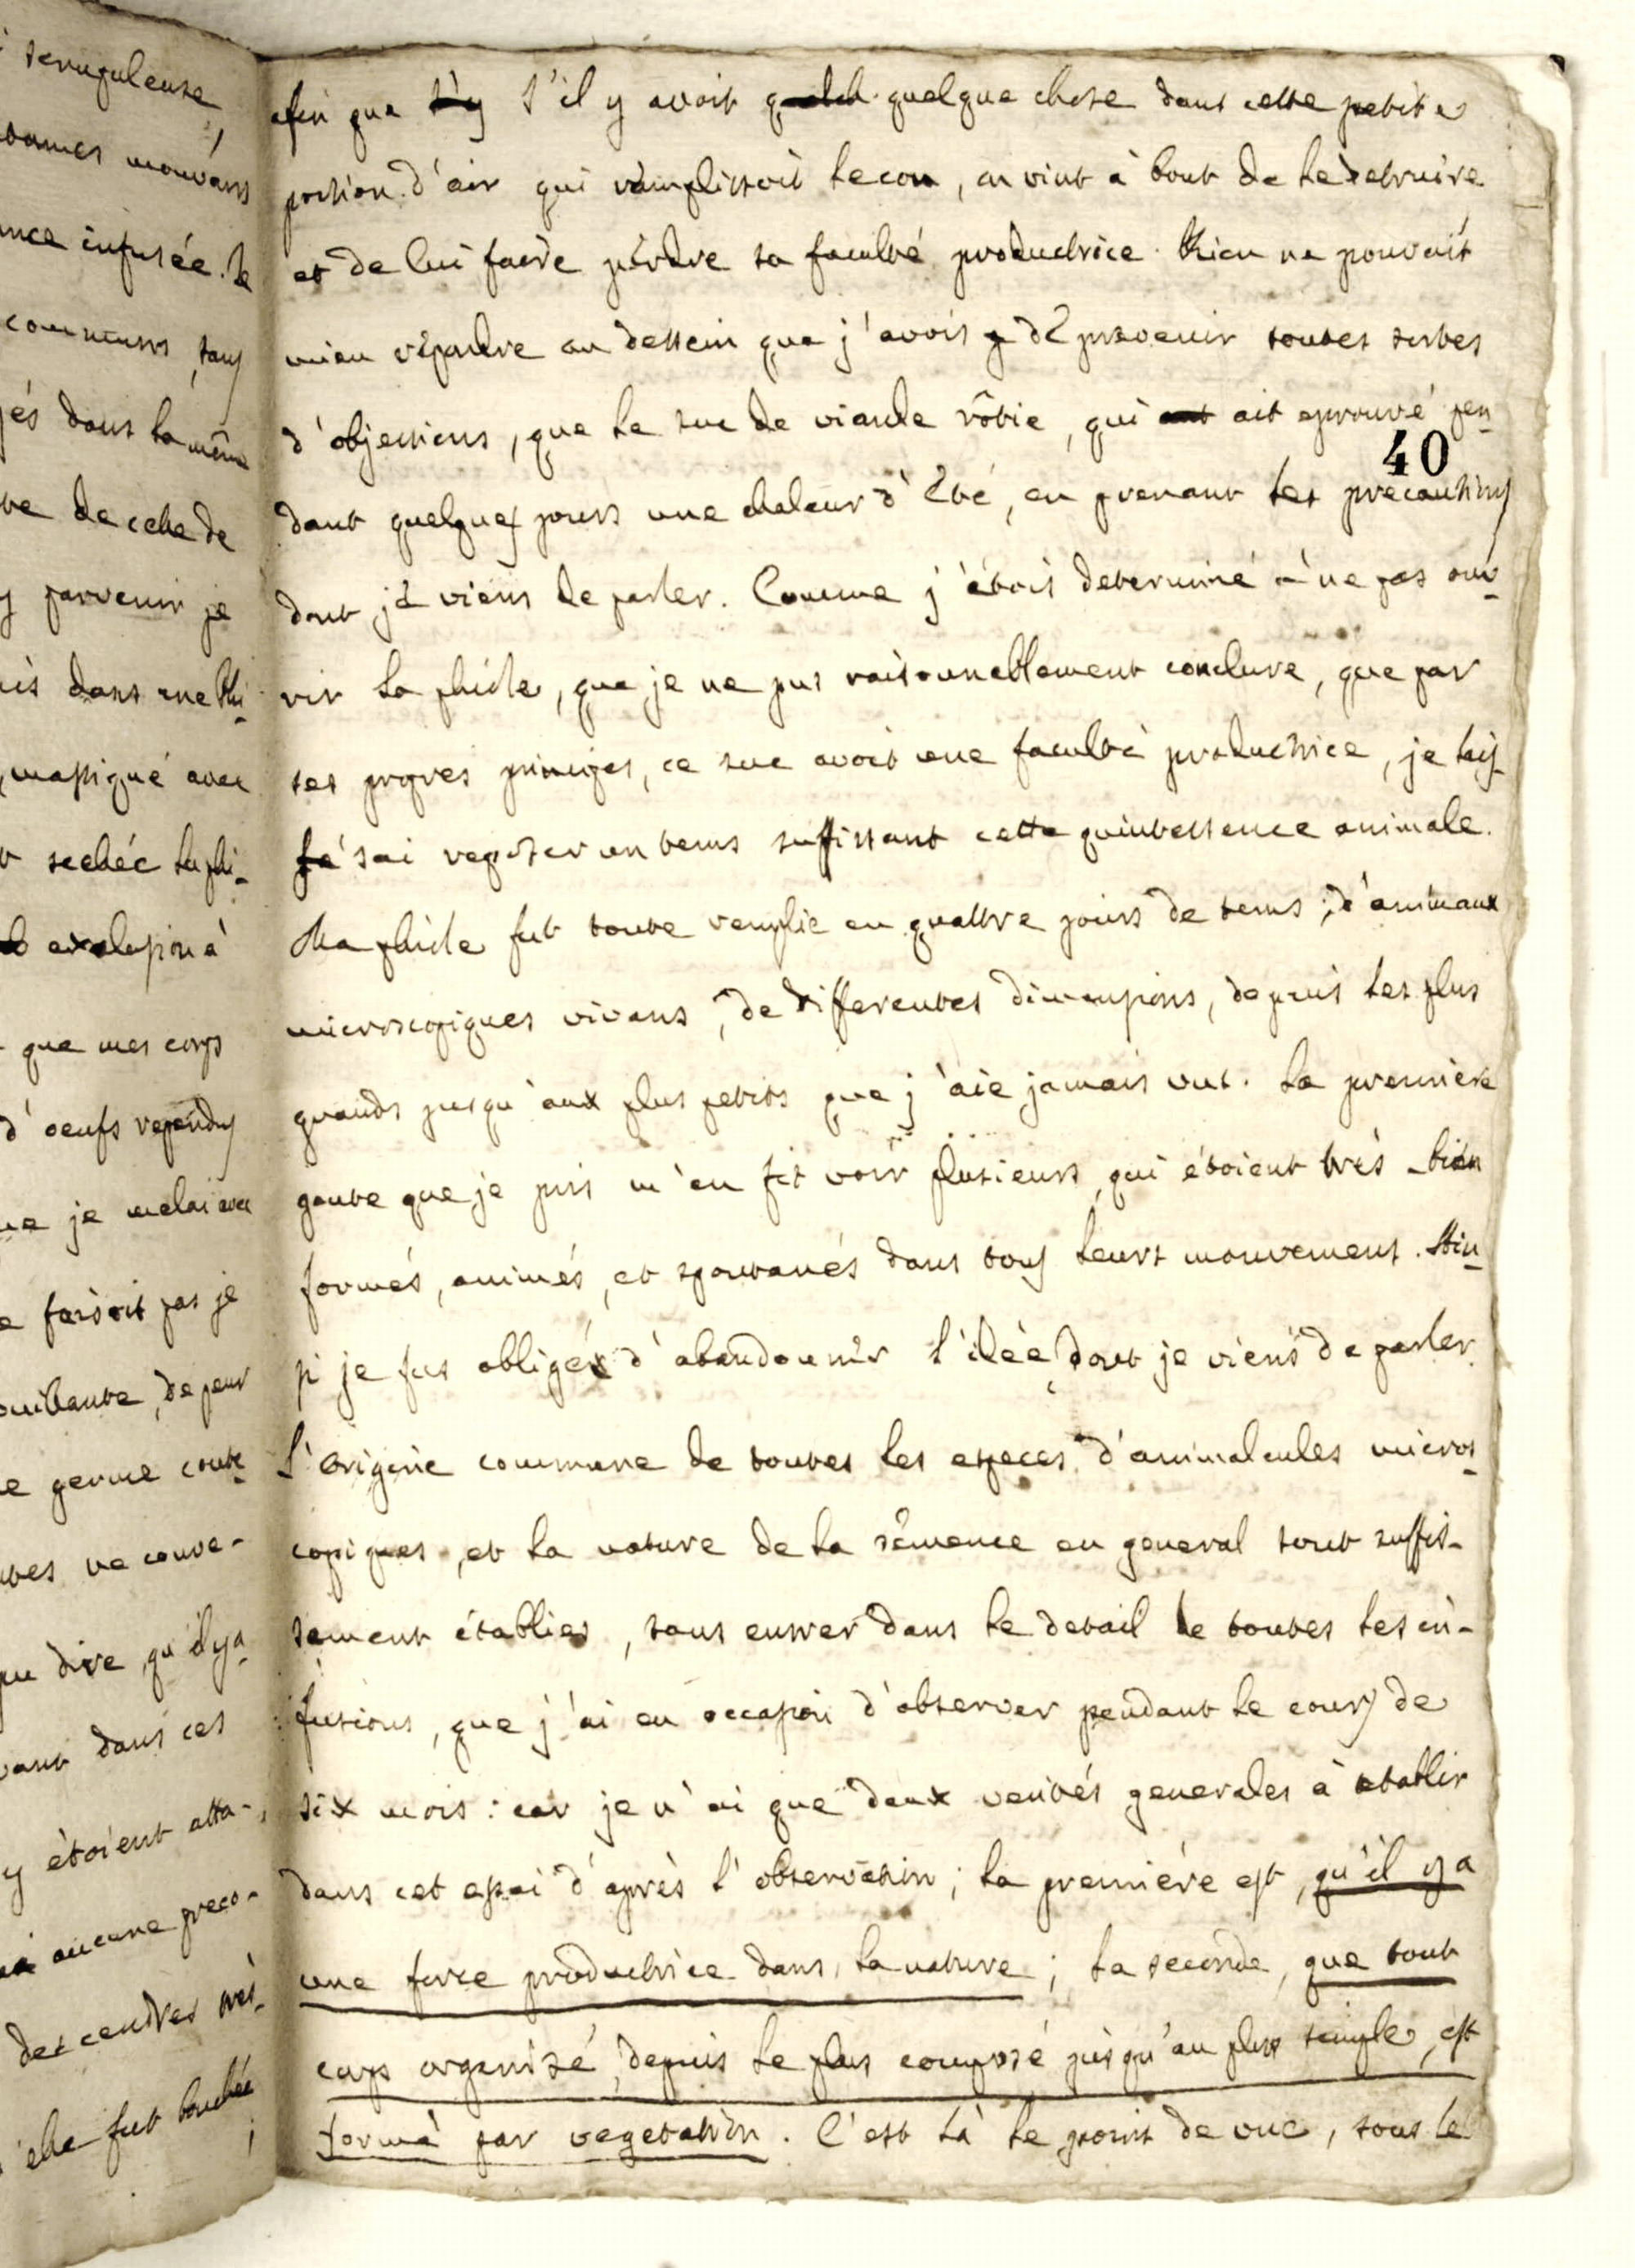 scrupuleuse,
mouvans
infusée. Je
communs, sans
dans la même
de celle de
parvenir je
dans une phi-
, mastiqué avec
sechée la phi-
exclusion à
que mes corps
d'oeufs repandus
je melai avec
faisoit pas je
de peur
germe conte-
ne conte-
dire, qu'il y a-
dans ces
y étoient atta-
aucune preca-
des cendres très-
elle fut bouchée;
afin que s'y s'il y avoit quelch. quelque chose dans cette petite
portion d'air qui remplissoit le cou, on vint à bout de le detruire
et de lui faire perdre sa faculté productrice. Rien ne pouvoit
mieu repondre au dessein que j'avois de prevenir toutes sortes
d'objections, que le suc de viande rôtie, qui ait eprouvé pen-
40
dant quelques jours une chaleur d'Eté, en prenant les precautions
dont je viens de parler. Comme j'étois determiné à ne pas ouv-
rir la phiole, que je ne pus raisonnablement conclure, que par
ses propres principes, ce suc avoit une faculté productrice, je laiſ-
sai reposer un tems suffissant cette quintessence animale.
Ma phiole fut toute remplie en quattre jours de tems; d'animaux
microscopiques vivans, de differentes dimensions, depuis les plus
grands jusqu'aux plus petits que j'aie jamais vus. La premiere
goute que je pris m'en fit voir plusieurs, qui étoient très-bien
formés, animés, et spontanés dans tous leurs mouvemens. Ain-
si je fus obligé d'abandonnér l'idée dont je viens de parler.
L'origine commune de toutes les especes d'animalcules micros-
copiques, et la nature de la sémence en general sont suffis-
sement établies, sans entrer dans le detail de toutes les in-
fusions, que j'ai eu occasion d'observer pendant le cours de
six mois: car je n'ai que deux verités generales à etablir
dans cet essai d'après l'observation; la premiére est, qu'il y a
une force productrice dans la nature; la seconde, que tout
corps organisé, depuis le plus composé jusqu'au plus simple, est
formé par vegetation. C'est là le point de vue, sous le